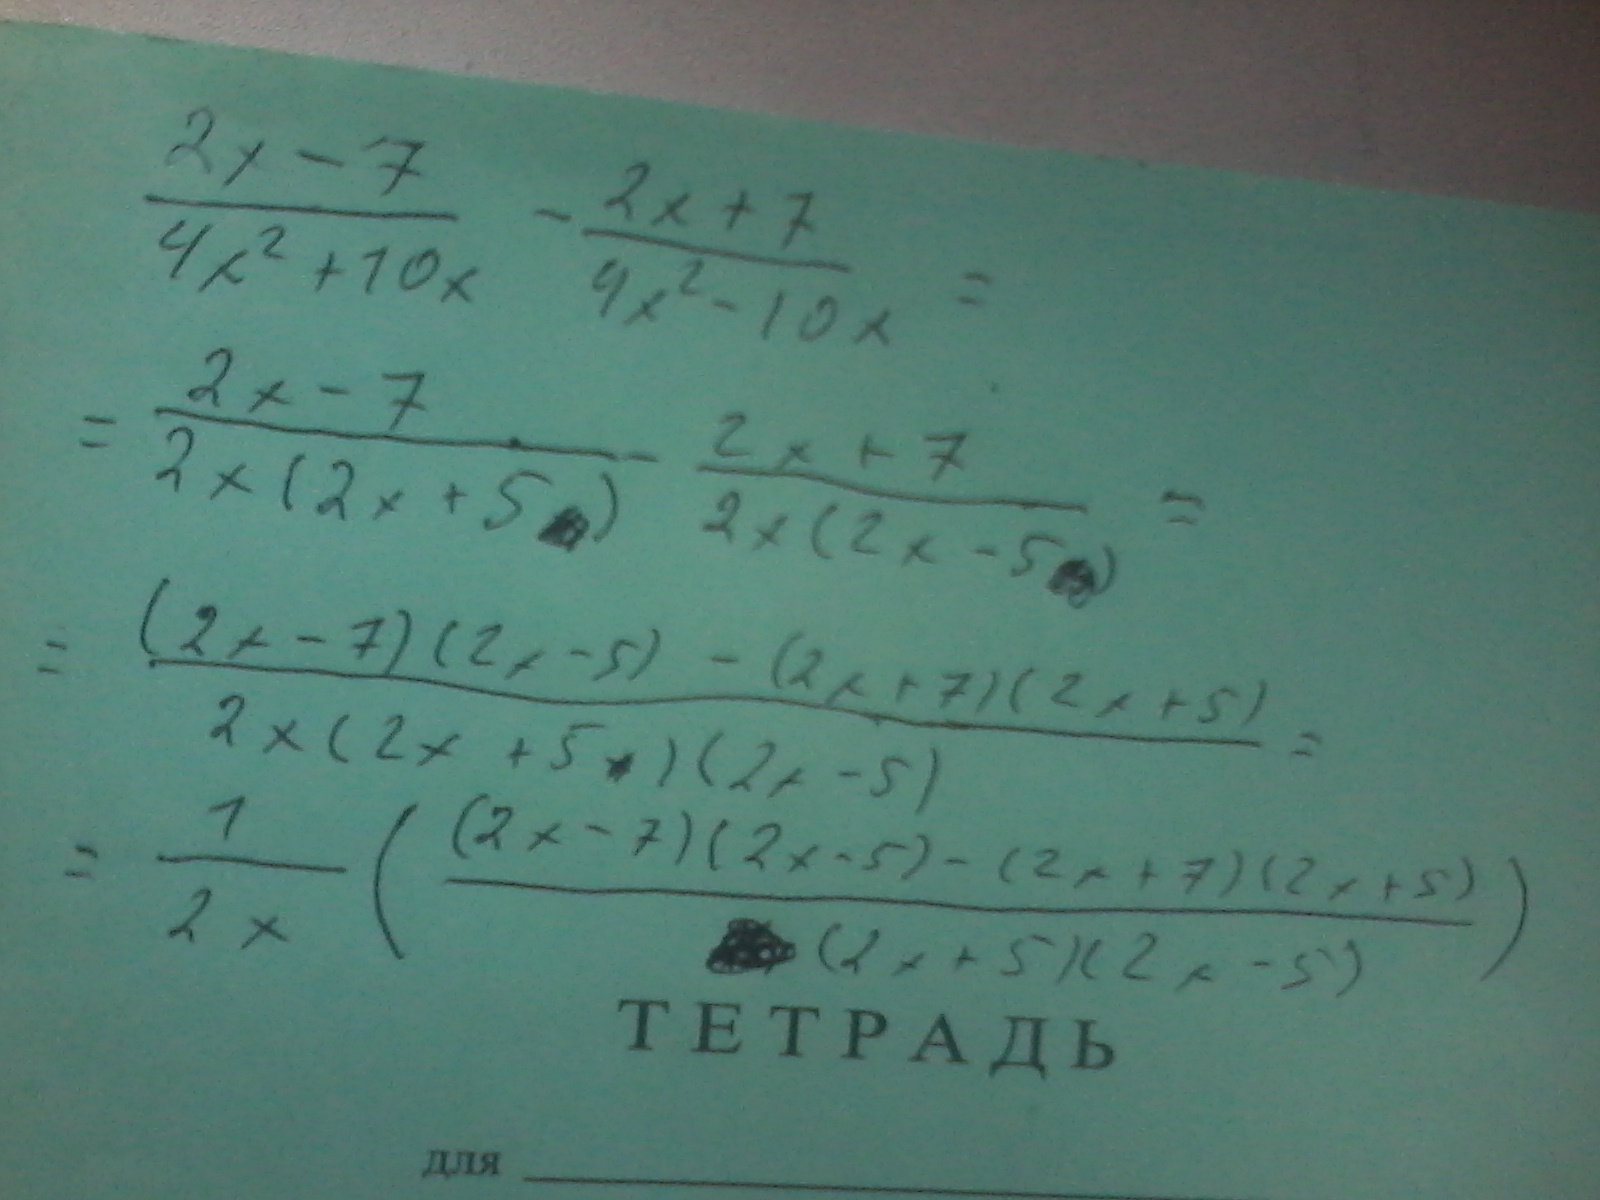 (2x - 7)/(4x² + 10x) - (2x + 7)/(4x² - 10x) =
= (2x - 7)/(2x(2x + 5)) - (2x + 7)/(2x(2x - 5)) =
= ((2x - 7)(2x - 5) - (2x + 7)(2x + 5))/(2x(2x + 5)(2x - 5)) =
= 1/(2x) (((2x - 7)(2x - 5) - (2x + 7)(2x + 5))/((2x + 5)(2x - 5)))
ТЕТРАДЬ
для